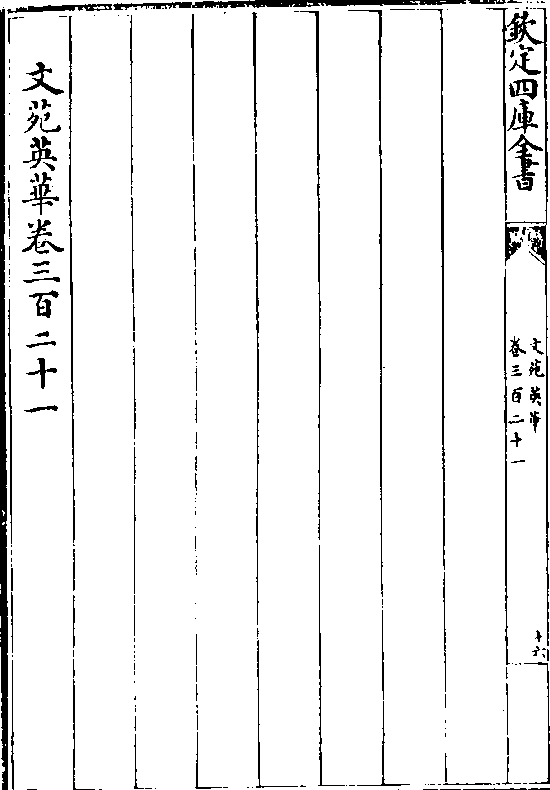 欽定四庫全書
文苑英華
卷三百二十一
十六
文苑英華卷三百二十一